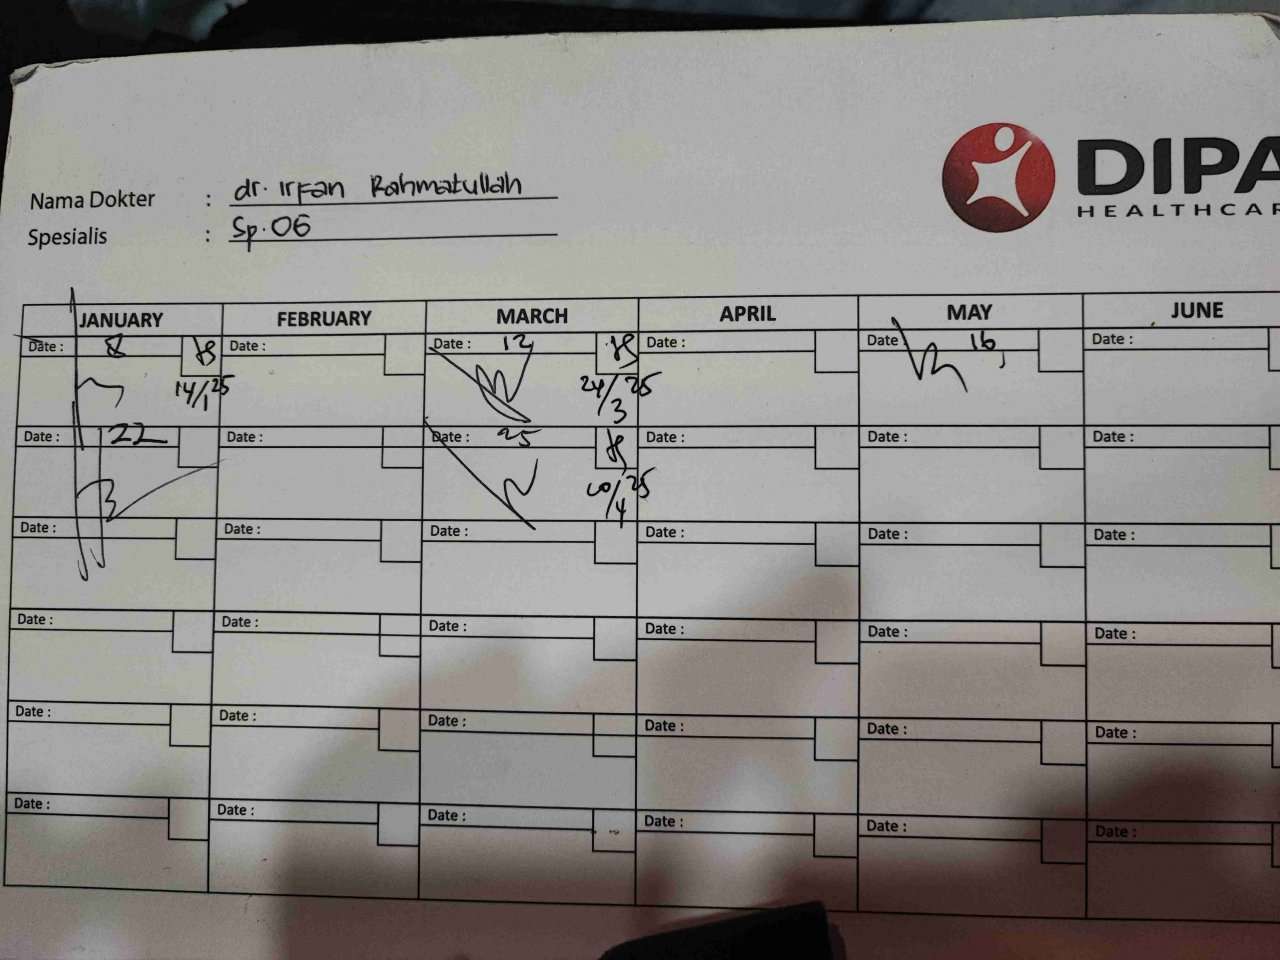 DIPA
HEALTHCAR
Nama Dokter : dr. Irfan Rahmatullah
Spesialis : Sp.OG
JANUARY FEBRUARY MARCH APRIL MAY JUNE
Date : 8 Date : Date : 12 Date : Date 16 Date :
14/1 25 24/3 25
Date : 22 Date : Date : 25 Date : Date : Date :
10/4 25
Date : Date : Date : Date : Date : Date :
Date : Date : Date : Date : Date : Date :
Date : Date : Date : Date : Date : Date :
Date : Date : Date : Date : Date : Date :